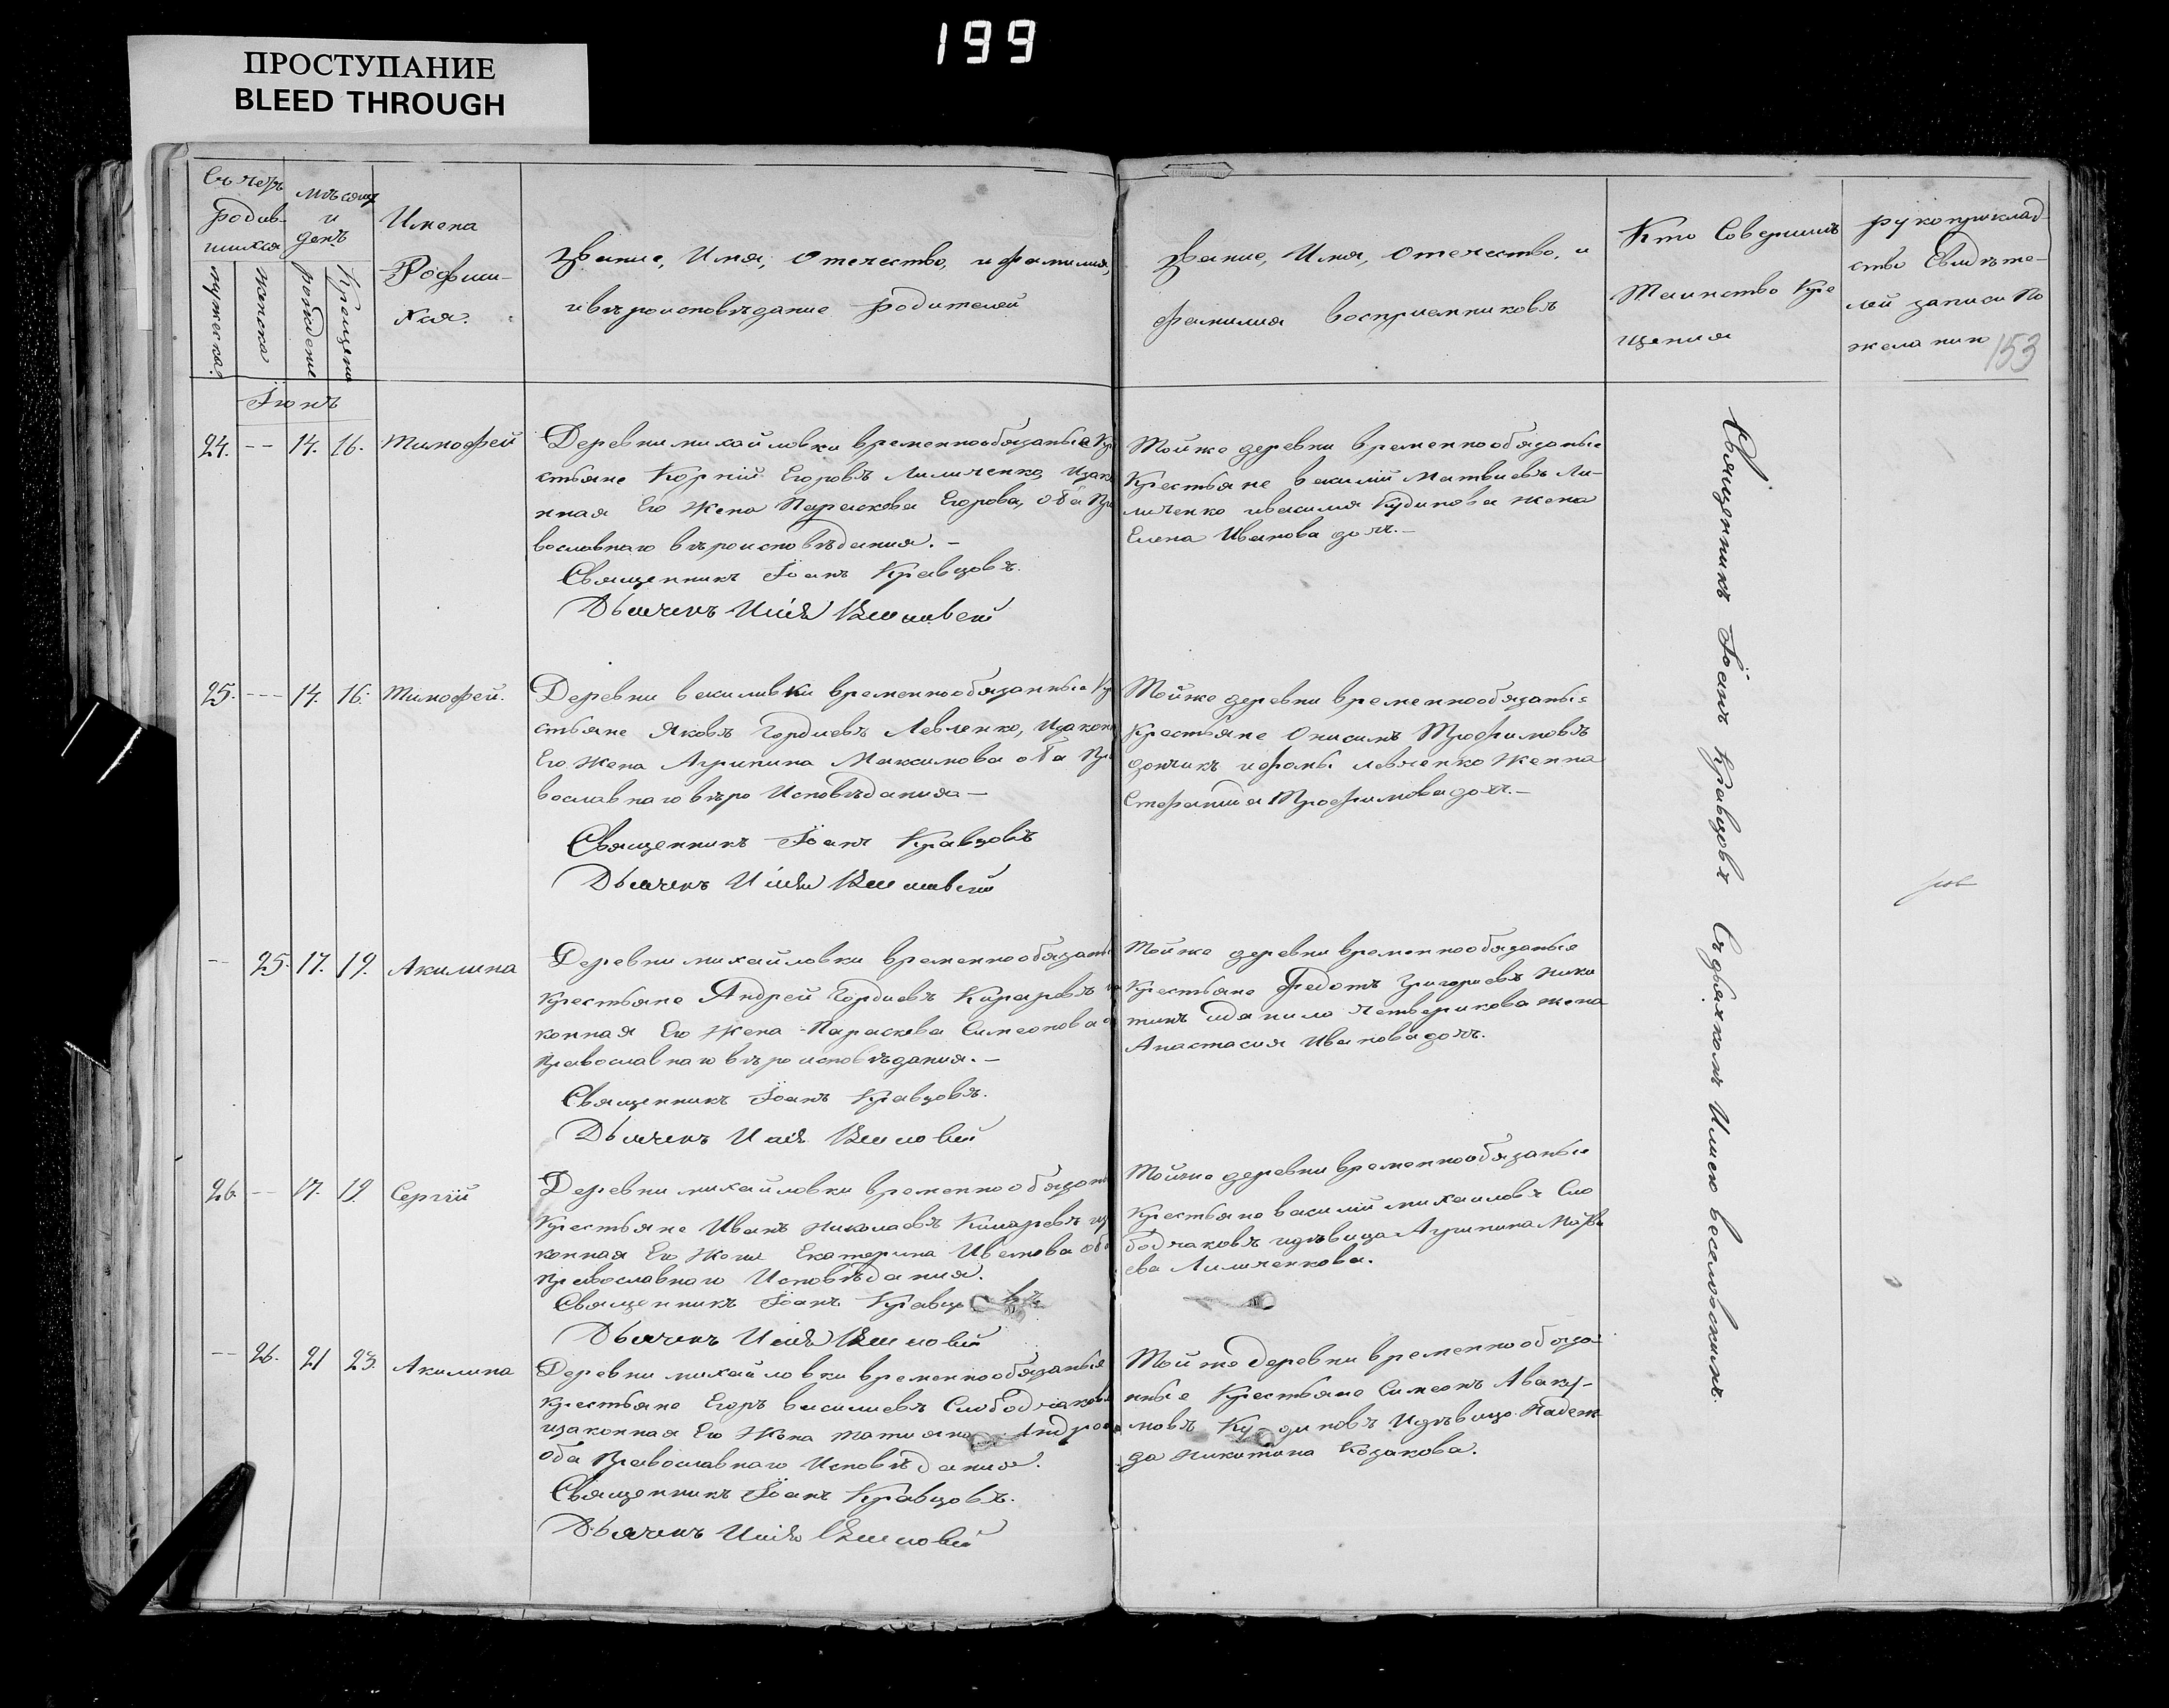 199
ПРОСТУПАНИЕ
BLEED THROUGH
родив-
шихся
мужеска.
женска
Мѣсяцъ
и
день
рожденія
Крещенія
Имена
Родивши-
хся.
Званіе, Имя, Отечество, и фамилія,
и вѣроисповѣданіе родителей
Званіе, Имя, Отечество, и
фамилія воспріемниковъ
Кто Совершилъ
Таинство Кре
щенія
рукоприклад-
ство Свидѣте-
лей записи По
желанію
153
Іюнь
24. -- 14. 16. Тимофей
Деревни михайловки временнообязаные Кре
стьяне Корній Егоровъ Лиличенко, Изако
нная Его Жена Параскева Егорова, оба Пра
вославнаго вѣроисповѣданія. -
Священникъ Іоанъ Кравцовъ.
Дьячекъ Илія
Тойже деревни временнообязаные
Крестьяне василій Матвиевъ Ли-
личенко ивасилія Кудинова жена
Елена Иванова дочь.-
25. --- 14. 16. Тимофей.
Деревни василивки временнообязанные Кре
стьяне Яковъ Гордиевъ Левченко, Изакон
Его Жена Агрипина Максимова оба Пра
вославнаго вѣро Исповѣданія -
Священникъ Іоанъ Кравцовъ
Дьячекъ Илія
Тойже деревни временнообязаные
Крестьяне Онисимъ Трофимовъ
ифомы левченко Женна
Стефанида Трофимова дочь.-
-- 25. 17. 19. Акилина
Деревни михайловки временнообязаны
Крестьяне Андрей Гордиевъ
конная Его Жена Параскева Симеонова
Православнаго вѣроисповѣданія. -
Священникъ Іоанъ Кравцовъ.
Дьячекъ Илія
Тойже деревни временнообязаные
Крестьяне Федотъ Григориевъ Ники
тинъ иданило Четверикова жена
Анастасия Иванова дочь.
26. -- 17. 19 Сергій
Деревни михайловки временнообязаны
Крестьяне Иванъ Николаевъ
конная Его Жена Екатерина Иванова оба
Православнаго Исповѣданія.
Священникъ Іоанъ Кравцовъ
Дьячекъ Илія
Тойже деревни временнообязаные
Крестьяне василій михаиловъ Сло
бодчаковъ идѣвица Агрипина
ева Лиличенкова.
-- 26. 21 23. Акилина
Деревни михайловки временнообязаные
Крестьяне Егоръ василиевъ Слободчаковъ
изаконная Его Жена татияна
оба Православнаго Исповѣданія.
Священникъ Іоанъ Кравцовъ.
Дьячекъ Илія
Тойже деревни временнообяза-
нные Крестьяне Симеонъ Аваку-
мовъ Кудиновъ Идѣвица Надеж
да Никитина Козакова.
Священникъ Іоанъ Кравцовъ Съдьячкомъ Илиею веселовскимъ.